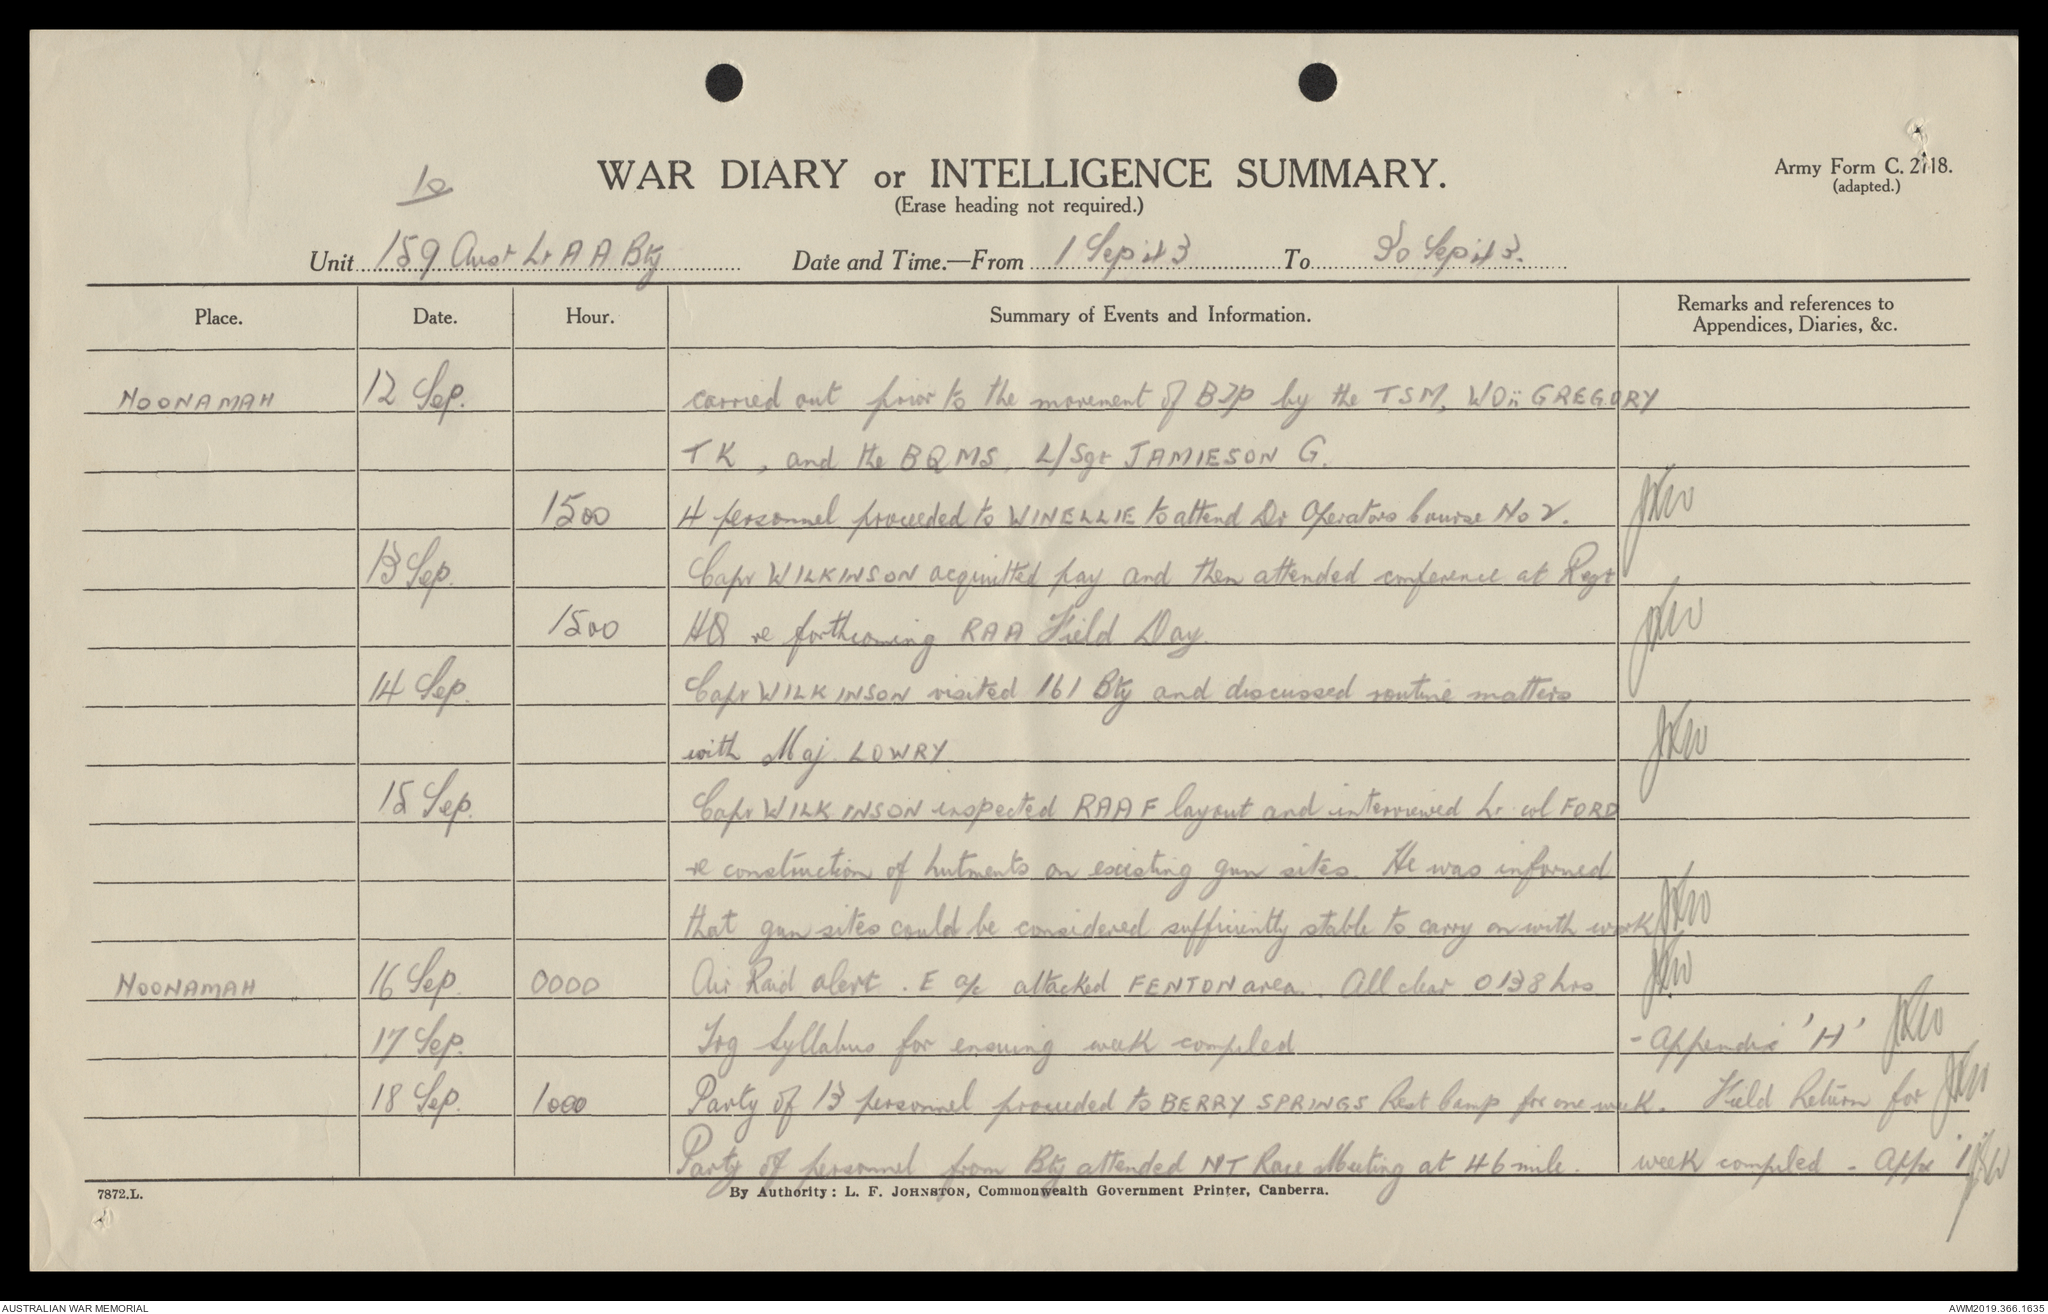 WAR DIARY or INTELLIGENCE SUMMARY.
(Erase heading not required.)
Army Form C. 2118.
(adapted.)
Unit 159 Aust Lt A A Bty Date and Time.—From 1 Sep 43 To 30 Sep 43.
Place. Date. Hour. Summary of Events and Information. Remarks and references to Appendices, Diaries, &c.
NOONAMAH 12 Sep. carried out prior to the movement of BJP by the TSM, WOii GREGORY
T K, and the BQMS, L/Sgt JAMIESON G.
1500 4 personnel proceeded to WINELLIE to attend Dr Operators Course No 2. JKW
13 Sep. Capt WILKINSON acquitted pay and then attended conference at Regt
1500 HQ re forthcoming RAA Field Day. JKW
14 Sep. Capt WILKINSON visited 161 Bty and discussed routine matters
with Maj. LOWRY JKW
15 Sep. Capt WILKINSON inspected RAAF layout and interviewed Lt col FORD
re construction of hutments on existing gun sites. He was informed
that gun sites could be considered sufficiently stable to carry on with work JKW
NOONAMAH 16 Sep. 0000 Air Raid alert. E a/c attacked FENTON area. All clear 0138 hrs JKW
17 Sep. Trg Syllabus for ensuing week compiled - Appendix 'H' JKW
18 Sep. 1000 Party of 13 personnel proceeded to BERRY SPRINGS Rest Camp for one week. Field Return for JKW
Party of personnel from Bty attended NT Race Meeting at 46 mile. week compiled - Appx 'I' JKW
7872.L.
By Authority: L. F. JOHNSTON, Commonwealth Government Printer, Canberra.
AUSTRALIAN WAR MEMORIAL
AWM2019.366.1635